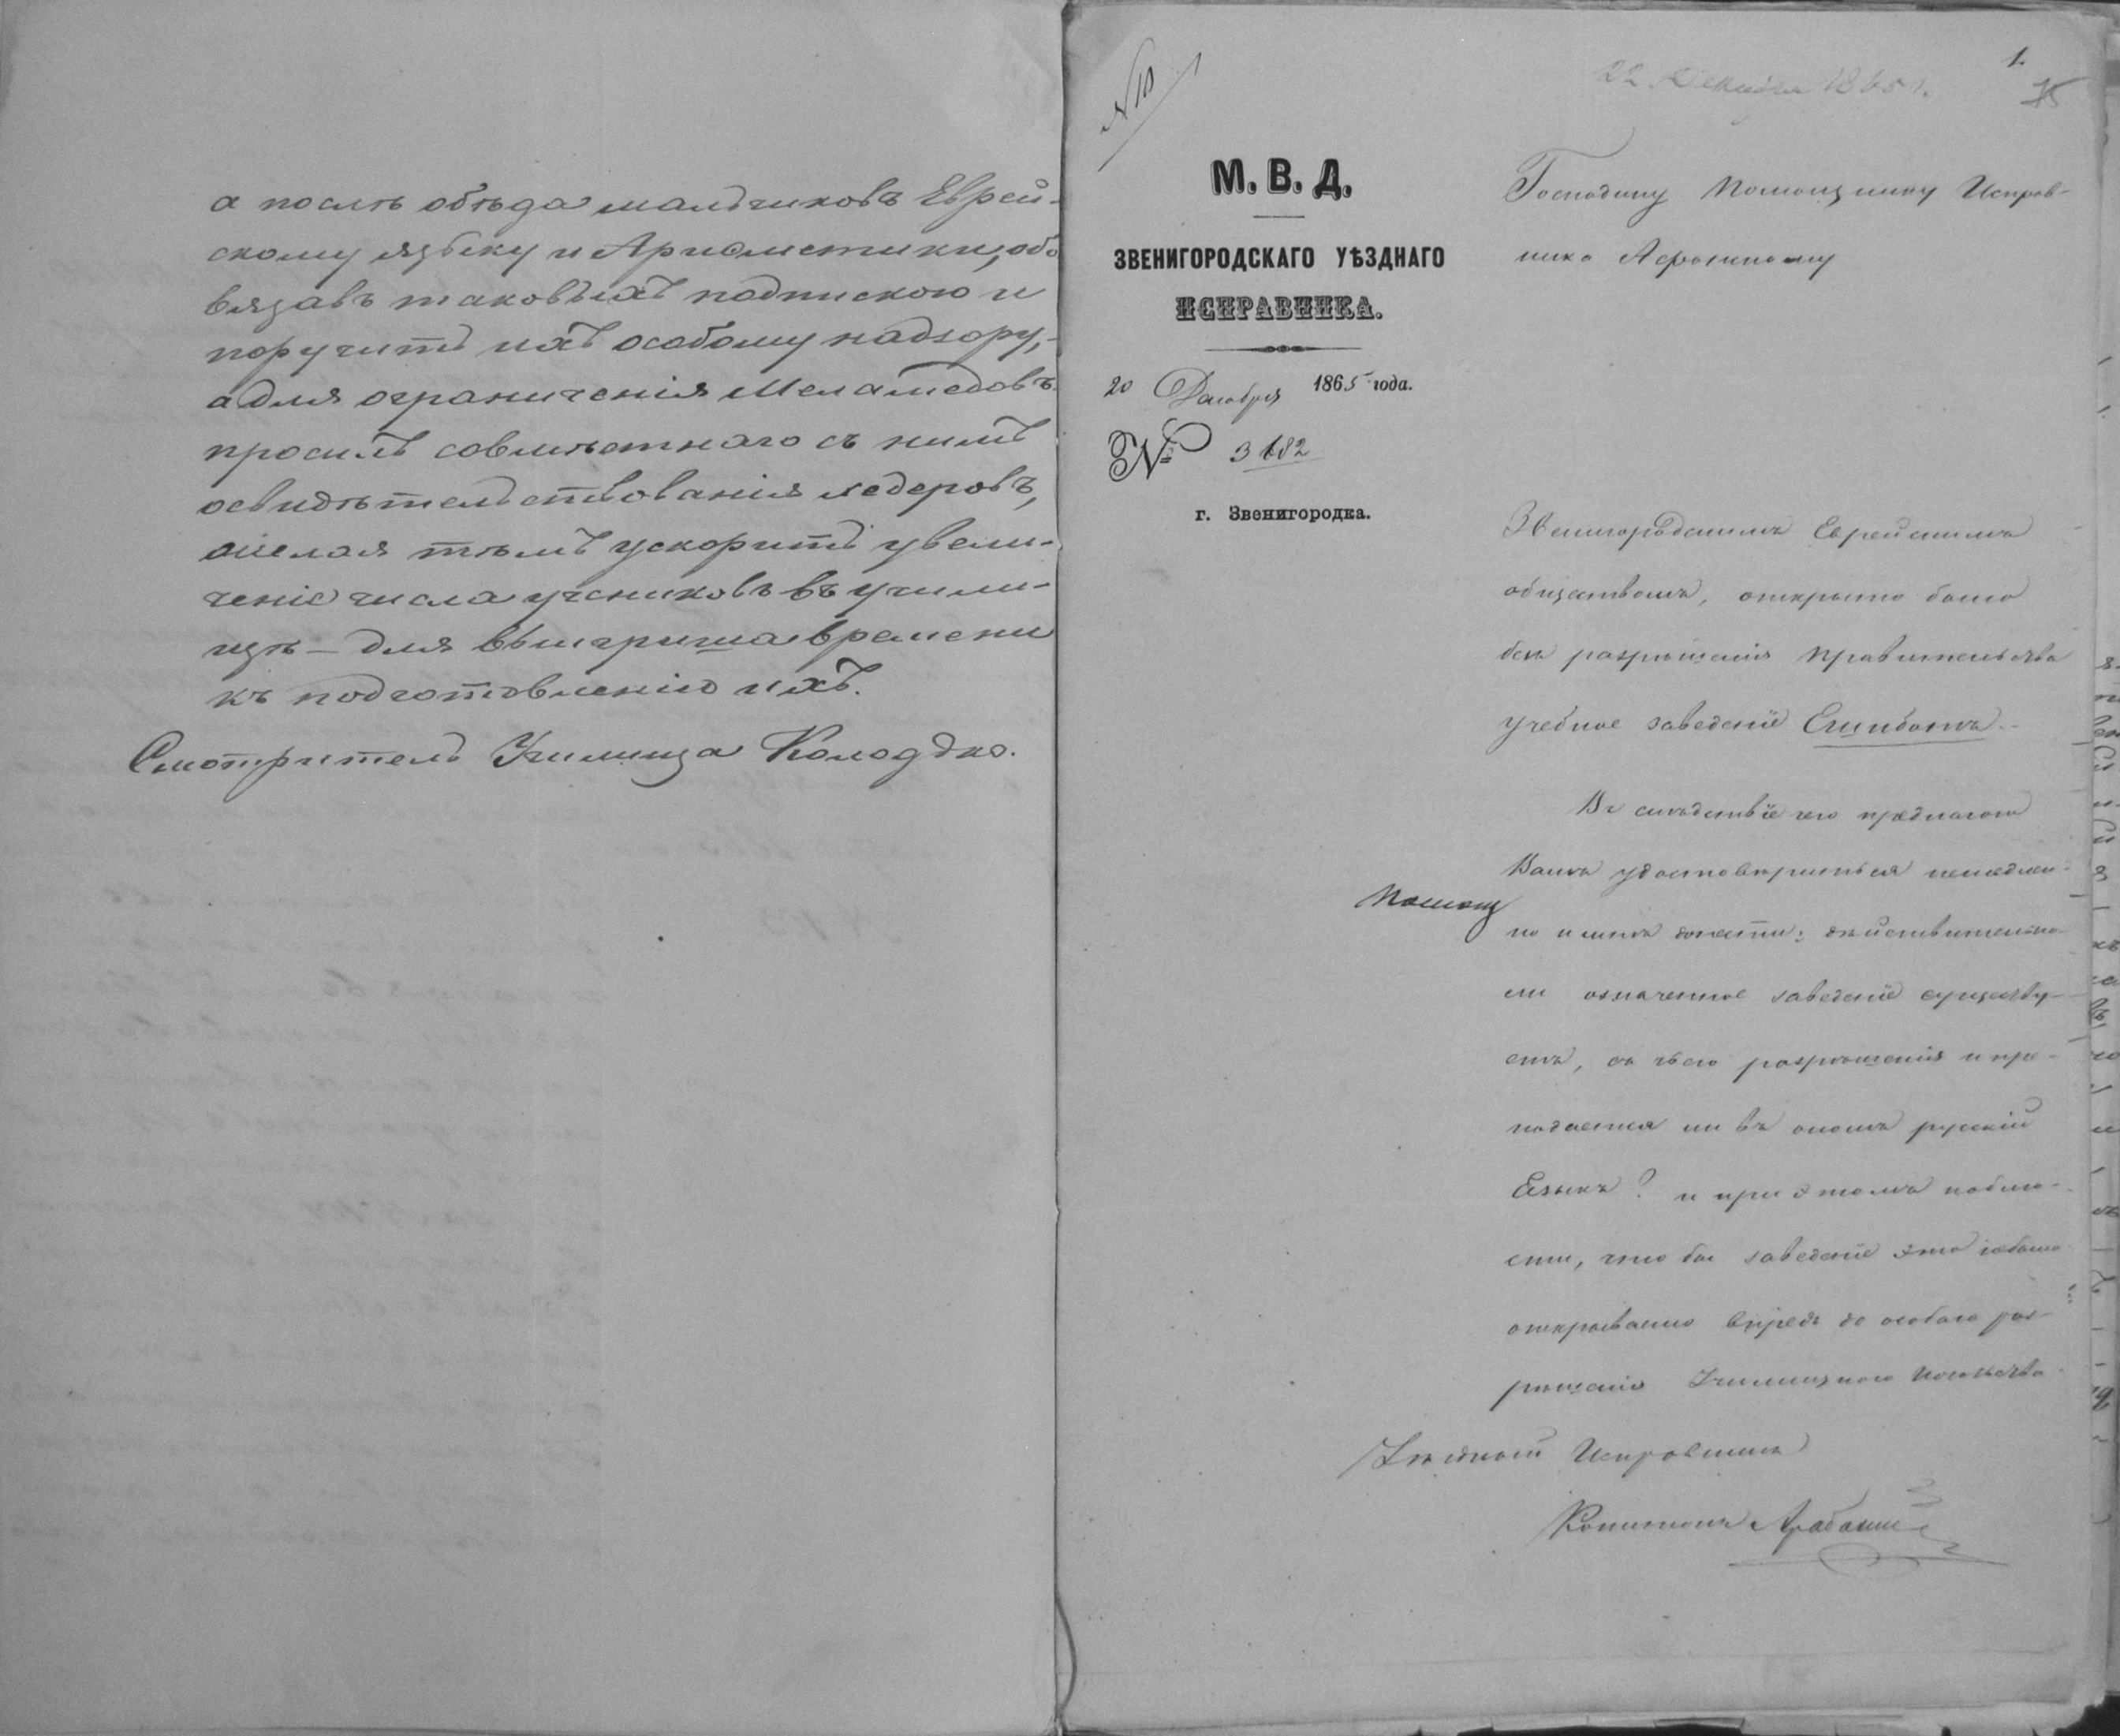 а послѣ обѣда мальчиковъ Еврей-
скому языку и Ариѳметики, обо
вязавъ таковыхъ подпискою и
поручить ихъ особому надзору,-
а для ограниченія Меламедовъ
просилъ совмѣстнаго съ нимъ
освидѣтельствованія хедеровъ,
желая тѣмъ ускорить увели-
ченіе числа учениковъ въ учили-
щѣ — для выигриша времени
къ подготовленію ихъ.
Смотритель Училища Колодзко.
N 10
22 Декабря 1865 г.
1.
75
М. В. Д.
ЗВЕНИГОРОДСКАГО УѢЗДНАГО
ИСПРАВНИКА.
20 Декабря 1865 года.
№ 3182
г. Звенигородка.
Господину Помощнику Исправ-
ника
Звенигородскимъ Еврейскимъ
обществомъ, открыто было
безъ разрѣшенія Правительства
учебное заведеніе Ешиботъ.
Въ слѣдствіе чего предлагаю
Вамъ удостовѣриться немедлен-
но и мнѣ донести: дѣйствительно
Помощ
ли означенное заведеніе существу-
етъ, съ чьего разрѣшенія и пре-
подается ли въ ономъ русскій
Езыкъ? и при этомъ наблю-
сти, что бы заведеніе это небыло
открываемо впредь до особаго раз-
рѣшенія Училищнаго Начальства
Уѣздный Исправникъ
Капитанъ